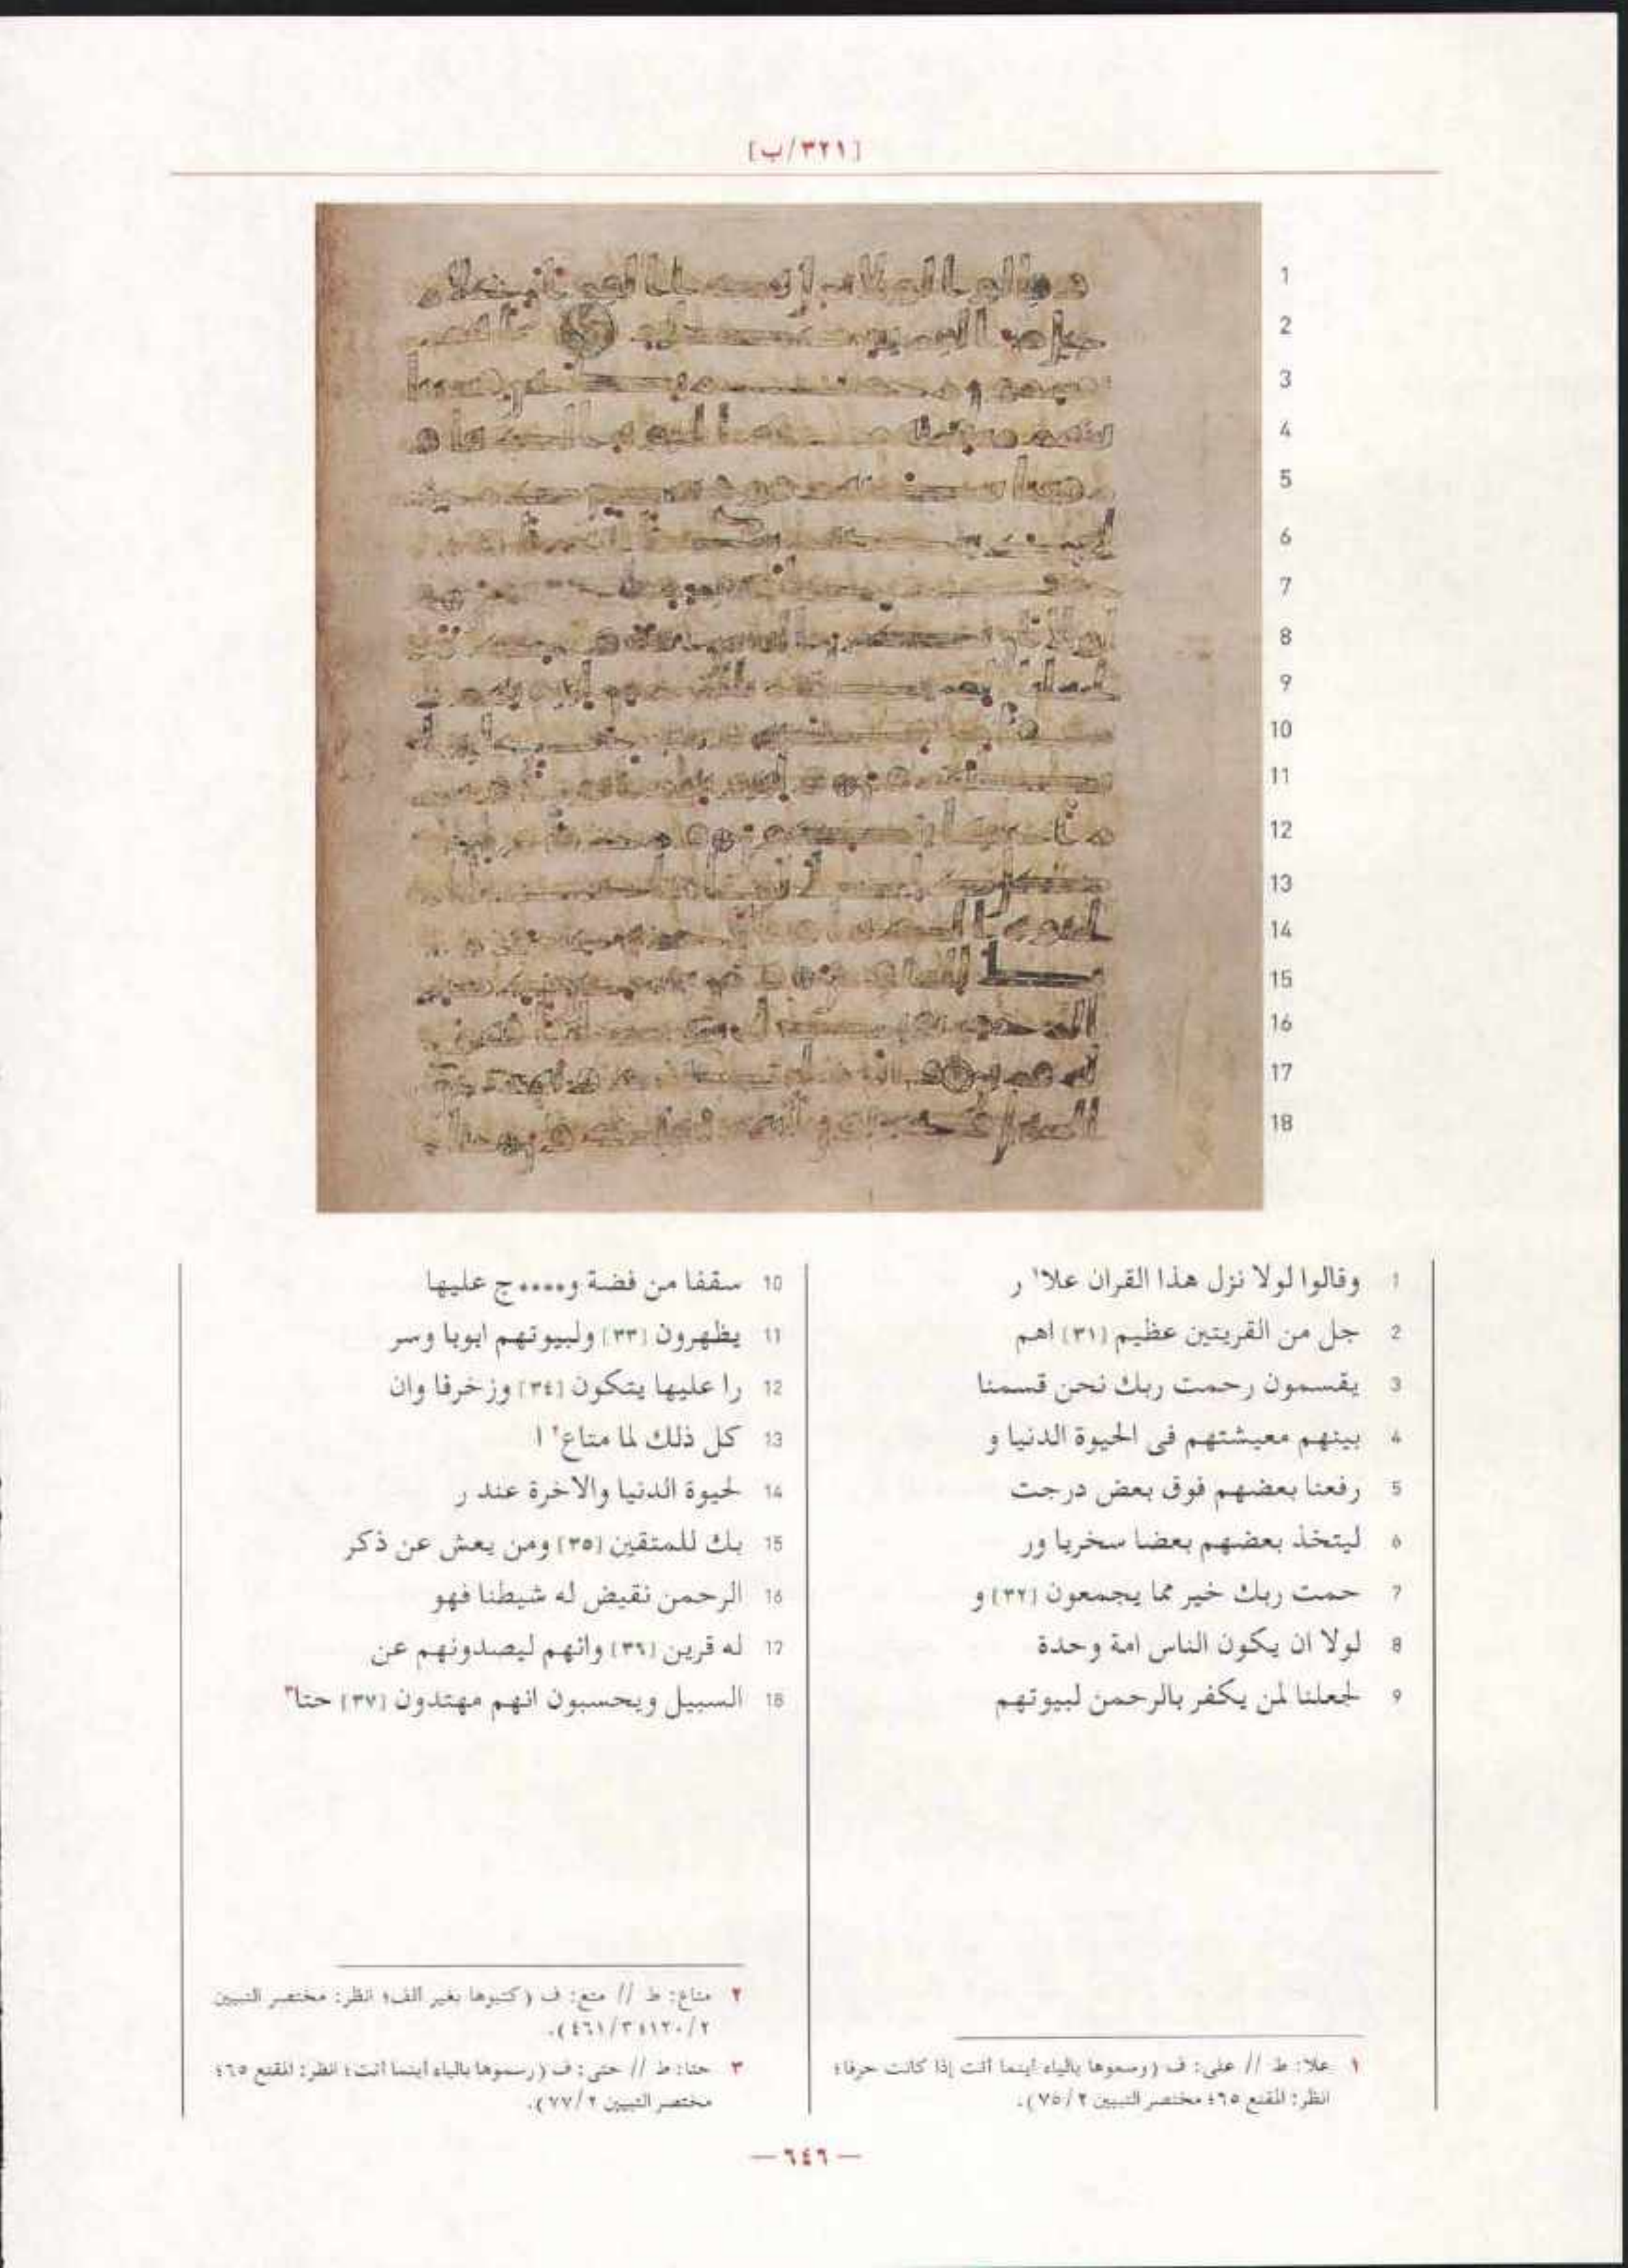 [٣٢١/ب]
1 وقالوا لولا نزل هذا القران علا١ ر
2 جل من القريتين عظيم [٣١] اهم
3 يقسمون رحمت ربك نحن قسمنا
4 بينهم معيشتهم فى الحيوة الدنيا و
5 رفعنا بعضهم فوق بعض درجت
6 ليتخذ بعضهم بعضا سخريا ور
7 حمت ربك خير مما يجمعون [٣٢] و
8 لولا ان يكون الناس امة وحدة
9 لجعلنا لمن يكفر بالرحمن لبيوتهم
10 سقفا من فضة و....ج عليها
11 يظهرون [٣٣] ولبيوتهم ابوبا وسر
12 را عليها يتكون [٣٤] وزخرفا وان
13 كل ذلك لما متاع٢ ا
14 لحيوة الدنيا والاخرة عند ر
15 بك للمتقين [٣٥] ومن يعش عن ذكر
16 الرحمن نقيض له شيطنا فهو
17 له قرين [٣٦] وانهم ليصدونهم عن
18 السبيل ويحسبون انهم مهتدون [٣٧] حتا٣
١ علا: ط // على: ف (رسموها بالياء أينما أتت إذا كانت حرفا؛
انظر: المقنع ٦٥؛ مختصر التبيين ٧٥/٢).
٢ متاع: ط // متع: ف (كتبوها بغير ألف؛ انظر: مختصر التبيين
١٢٠/٢؛ ٤٦١/٣).
٣ حتا: ط // حتى: ف (رسموها بالياء أينما أتت؛ انظر: المقنع ٦٥؛
مختصر التبيين ٧٧/٢).
— ٦٤٦ —